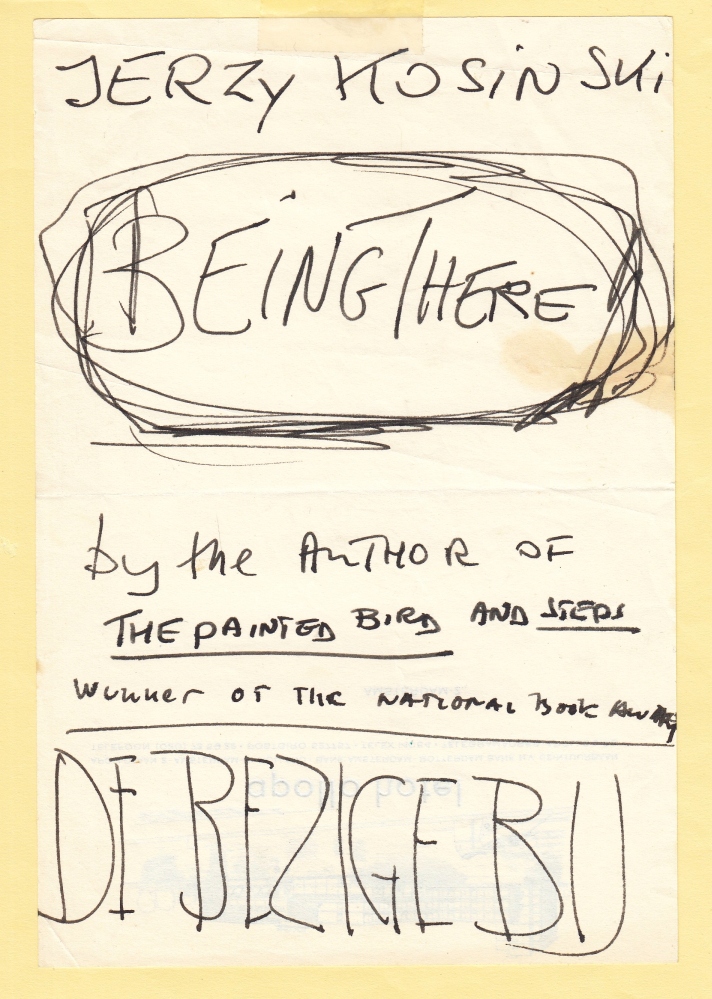 JERZY KOSiNSKi
BEiNG THERE
by the AUTHOR OF
THE PAINTED BIRD AND STEPS
Wunner OF THE NATIONAL Book AWARD
DE BEZIGE BIJ
apollo hotel